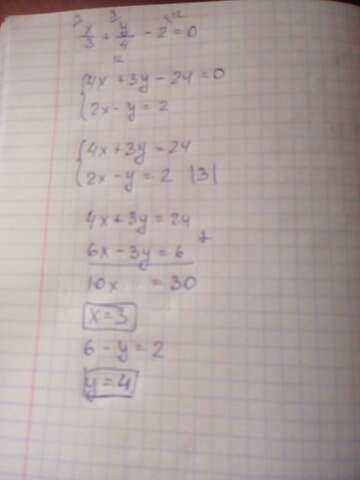 x/3 + y/4 - 2 = 0
12
4x + 3y - 24 = 0
2x - y = 2
4x + 3y = 24
2x - y = 2 |3|
4x + 3y = 24
6x - 3y = 6 +
10x = 30
x = 3
6 - y = 2
y = 4